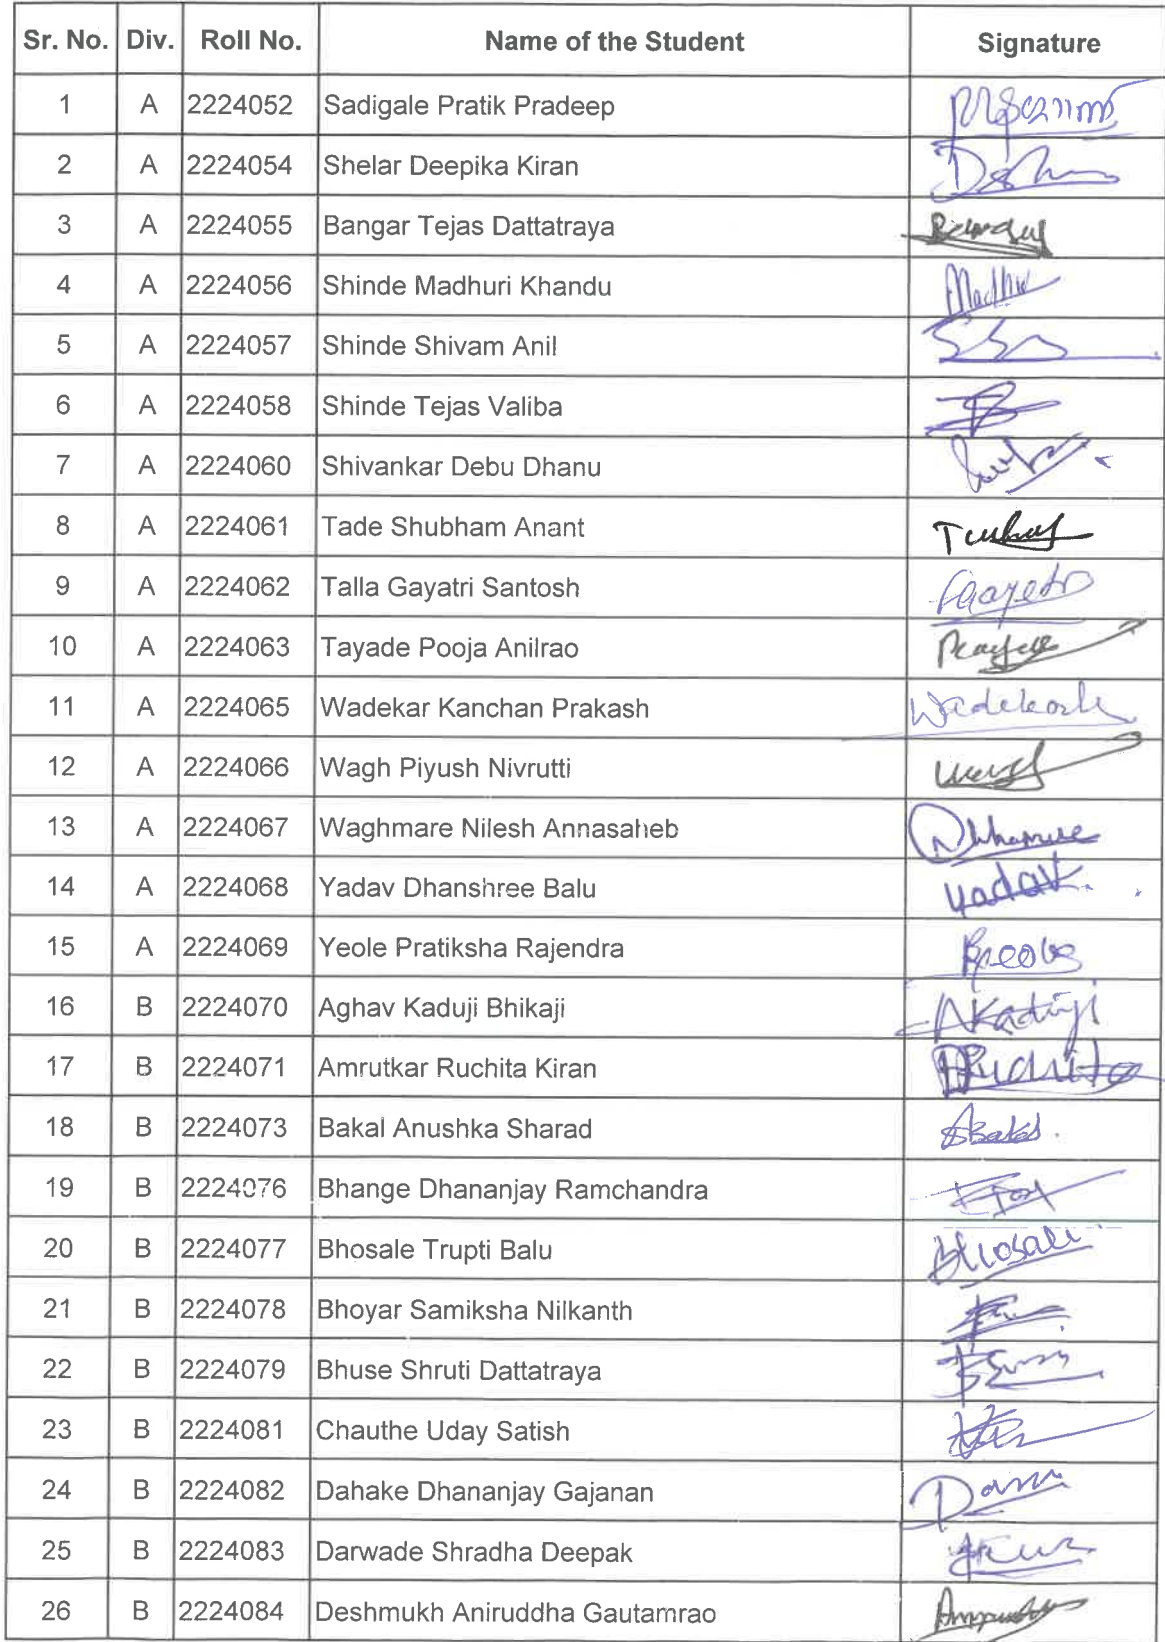 Sr. No. Div. Roll No. Name of the Student Signature
1 A 2224052 Sadigale Pratik Pradeep
2 A 2224054 Shelar Deepika Kiran
3 A 2224055 Bangar Tejas Dattatraya
4 A 2224056 Shinde Madhuri Khandu
5 A 2224057 Shinde Shivam Anil
6 A 2224058 Shinde Tejas Valiba
7 A 2224060 Shivankar Debu Dhanu
8 A 2224061 Tade Shubham Anant
9 A 2224062 Talla Gayatri Santosh
10 A 2224063 Tayade Pooja Anilrao
11 A 2224065 Wadekar Kanchan Prakash
12 A 2224066 Wagh Piyush Nivrutti
13 A 2224067 Waghmare Nilesh Annasaheb
14 A 2224068 Yadav Dhanshree Balu Yadav
15 A 2224069 Yeole Pratiksha Rajendra
16 B 2224070 Aghav Kaduji Bhikaji AKaduji
17 B 2224071 Amrutkar Ruchita Kiran
18 B 2224073 Bakal Anushka Sharad
19 B 2224076 Bhange Dhananjay Ramchandra
20 B 2224077 Bhosale Trupti Balu Bhosale
21 B 2224078 Bhoyar Samiksha Nilkanth
22 B 2224079 Bhuse Shruti Dattatraya
23 B 2224081 Chauthe Uday Satish
24 B 2224082 Dahake Dhananjay Gajanan
25 B 2224083 Darwade Shradha Deepak
26 B 2224084 Deshmukh Aniruddha Gautamrao